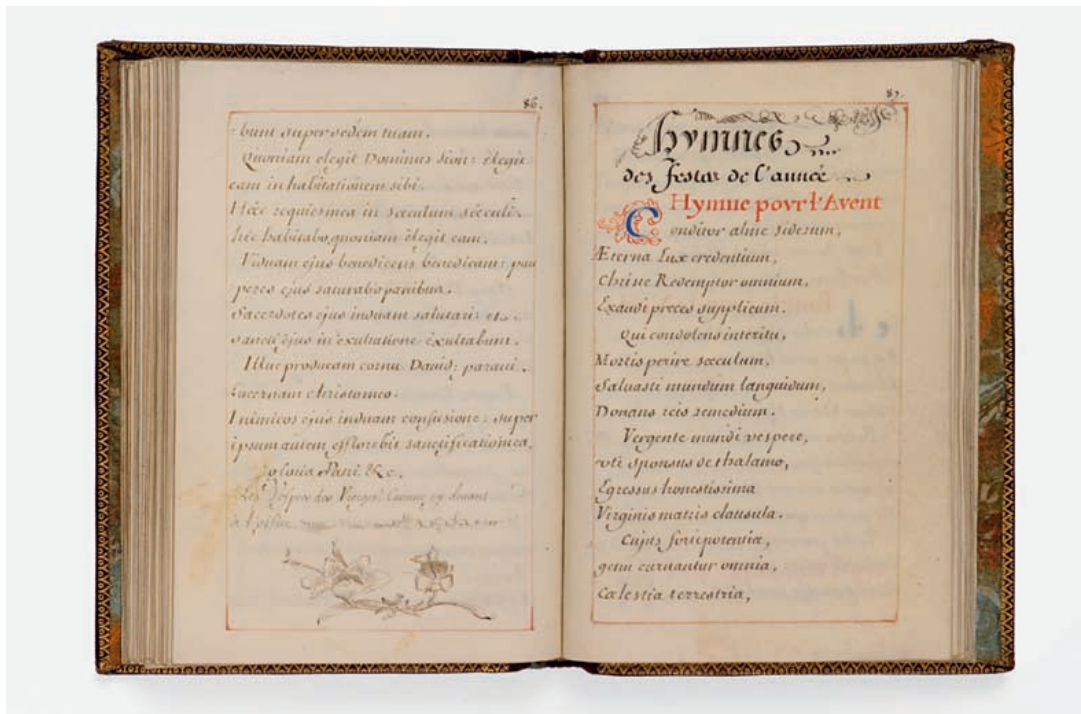 86.
bunt super sedem tuam.
Quoniam elegit Dominus sion: elegit
eam in habitationem sibi.
Hæc requies mea in sæculum sæculi:
hîc habitabo, quoniam elegit eam.
Viduam ejus benedicens benedicam: pau
peres ejus saturabo panibus.
Sacerdotes ejus induam salutari: et
sancti ejus in exultatione exultabunt.
Illuc producam cornu David: paravi
Lucernam christo meo.
Inimicos ejus induam confusione: super
ipsum autem efflorebit sanctificatio mea.
gloria Patri &c.
Les Vêpres des Vierges Comme cy devant
à
87.
hymnes
des festes de l'année
Hymne povr l'Avent
Conditor alme siderum,
Æterna Lux credentium,
Christe Redemptor omnium,
Exaudi preces supplicum.
Qui condolens interitu,
Mortis perire sæculum,
Salvasti mundum languidum,
Donans reis remedium.
Vergente mundi vespere,
vti sponsus de thalamo,
Egressus honestissima
Virginis matris clausula.
Cujus forti potentiæ,
genu curvantur omnia,
Cælestia terrestria,